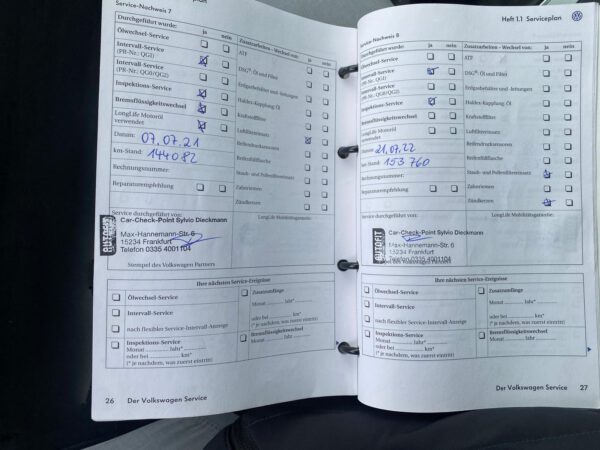 Service-Nachweis 7
Durchgeführt wurde: ja nein Zusatzarbeiten - Wechsel von: ja nein
Ölwechsel-Service
Intervall-Service
(PR-Nr.: QG1)
Intervall-Service
(PR-Nr.: QG0/QG2)
Inspektions-Service
Bremsflüssigkeitswechsel
LongLife Motoröl
verwendet
Datum: 07.07.21
km-Stand: 144082
Rechnungsnummer:
Reparaturempfehlung
ATF
DSG®: Öl und Filter
Erdgasbehälter und -leitungen
Haldex-Kupplung: Öl
Kraftstofffilter
Luftfiltereinsatz
Reifendrucksensoren
Reifenfüllflasche
Staub- und Pollenfiltereinsatz
Zahnriemen
Zündkerzen
Service durchgeführt von: LongLife Mobilitätsgarantie:
AUTOFIT
Car-Check-Point Sylvio Dieckmann
Max-Hannemann-Str. 6
15234 Frankfurt
Telefon 0335 4001104
Stempel des Volkswagen Partners
Ihre nächsten Service-Ereignisse
Ölwechsel-Service
Intervall-Service
nach flexibler Service-Intervall-Anzeige
Inspektions-Service
Monat ............ Jahr*............
oder bei ............ km*
(* je nachdem, was zuerst eintritt)
Zusatzumfänge
Monat ............ Jahr*............
oder bei ............ km*
(* je nachdem, was zuerst eintritt)
Bremsflüssigkeitswechsel
Monat ............ Jahr............
26 Der Volkswagen Service
Heft 1.1 Serviceplan
Service-Nachweis 8
Durchgeführt wurde: ja nein Zusatzarbeiten - Wechsel von: ja nein
Ölwechsel-Service
Intervall-Service
(PR-Nr.: QG1)
Intervall-Service
(PR-Nr.: QG0/QG2)
Inspektions-Service
Bremsflüssigkeitswechsel
LongLife Motoröl
verwendet
Datum: 21.07.22
km-Stand: 153760
Rechnungsnummer:
Reparaturempfehlung
ATF
DSG®: Öl und Filter
Erdgasbehälter und -leitungen
Haldex-Kupplung: Öl
Kraftstofffilter
Luftfiltereinsatz
Reifendrucksensoren
Reifenfüllflasche
Staub- und Pollenfiltereinsatz
Zahnriemen
Zündkerzen
Service durchgeführt von: LongLife Mobilitätsgarantie:
AUTOFIT
Car-Check-Point Sylvio Dieckmann
Max-Hannemann-Str. 6
15234 Frankfurt
Telefon 0335 4001104
Stempel des Volkswagen Partners
Ihre nächsten Service-Ereignisse
Ölwechsel-Service
Intervall-Service
nach flexibler Service-Intervall-Anzeige
Inspektions-Service
Monat ............ Jahr*............
oder bei ............ km*
(* je nachdem, was zuerst eintritt)
Zusatzumfänge
Monat ............ Jahr*............
oder bei ............ km*
(* je nachdem, was zuerst eintritt)
Bremsflüssigkeitswechsel
Monat ............ Jahr............
Der Volkswagen Service 27